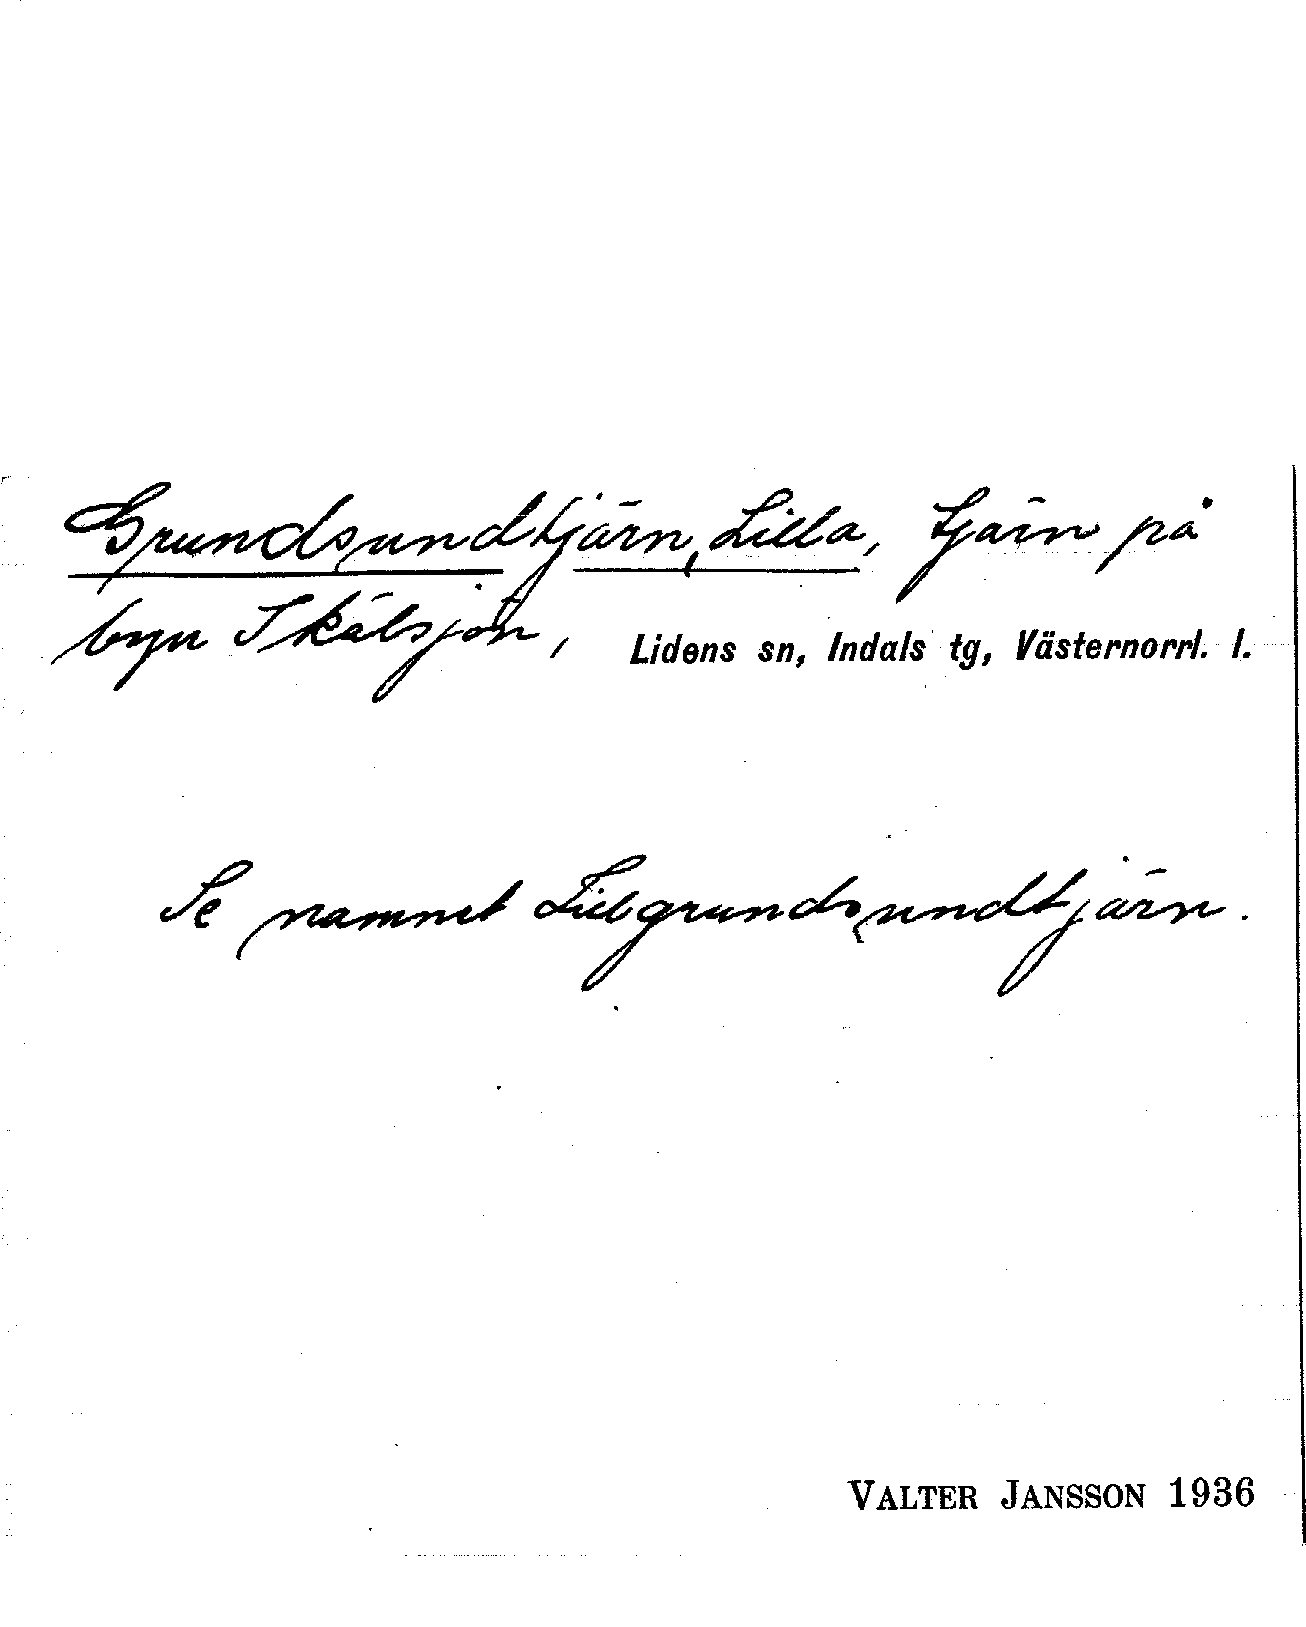 Grundsundtjärn, Lilla, tjärn på
byn Skälsjön, Lidens sn, Indals tg, Västernorrl. l.
Se namnet Lillgrundsundtjärn.
VALTER JANSSON 1936